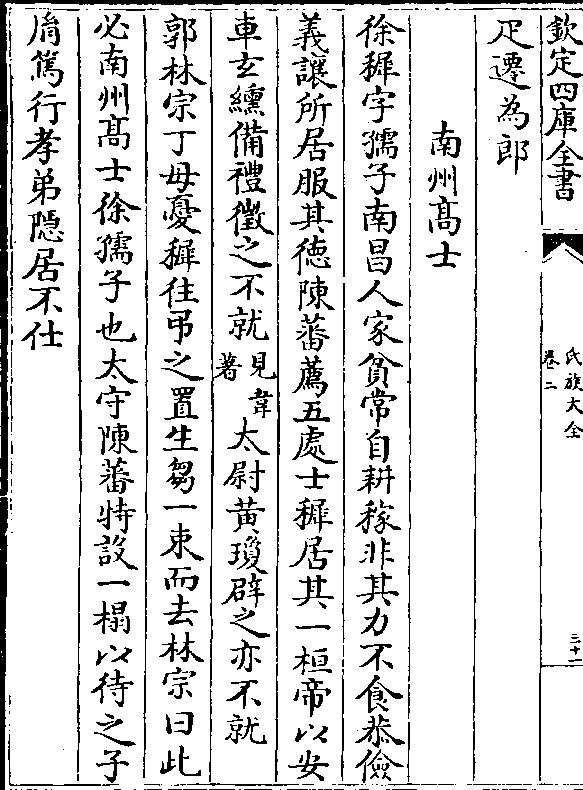 欽定四庫全書
氏族大全
卷二
三十二
疋遷為郎
南州髙士
徐穉字孺子南昌人家貧常自耕稼非其力不食恭儉
義讓所居服其徳陳蕃薦五處士穉居其一桓帝以安
車玄纁備禮徵之不就見韋著太尉黄瓊辟之亦不就
郭林宗丁母憂穉往弔之置生芻一束而去林宗曰此
必南州髙士徐孺子也太守陳蕃特設一榻以待之子
㣧篤行孝弟隠居不仕